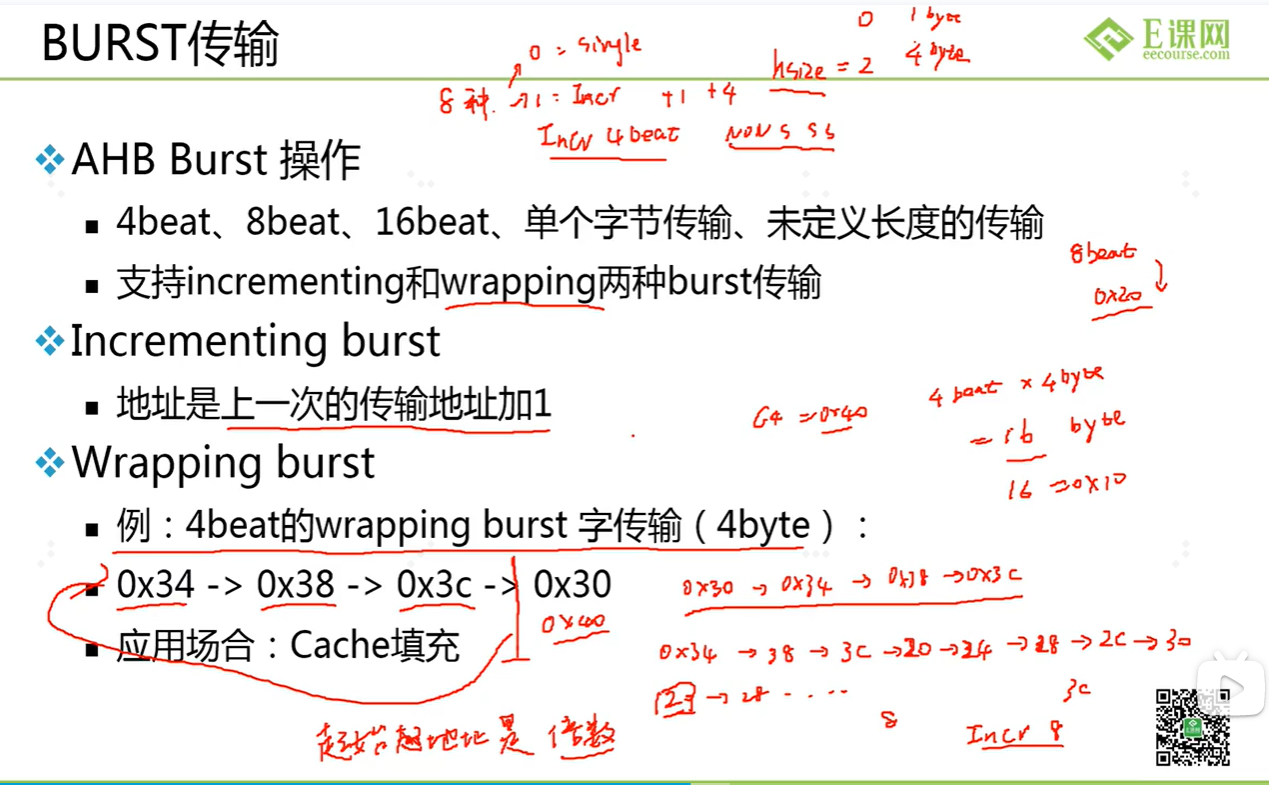 BURST传输
0 1 byte
E课网
eecourse.com
0 = single
hsize = 2 4 byte
8种 →1 = Incr +1 +4
Incr 4 beat NON S S S
AHB Burst 操作
4beat、8beat、16beat、单个字节传输、未定义长度的传输
8beat
支持incrementing和wrapping两种burst传输
0x20
Incrementing burst
4 beat × 4byte
地址是上一次的传输地址加1
64 = 0x40
= 16 byte
Wrapping burst
16 = 0x10
例：4beat的wrapping burst 字传输（4byte）：
0x34 -> 0x38 -> 0x3c -> 0x30
0x30 → 0x34 → 0x38 → 0x3c
0x40
应用场合：Cache填充
0x34 → 38 → 3C → 20 → 24 → 28 → 2C → 30
→ 28 ....
3c
8
Incr 8
起始 地址是 倍数